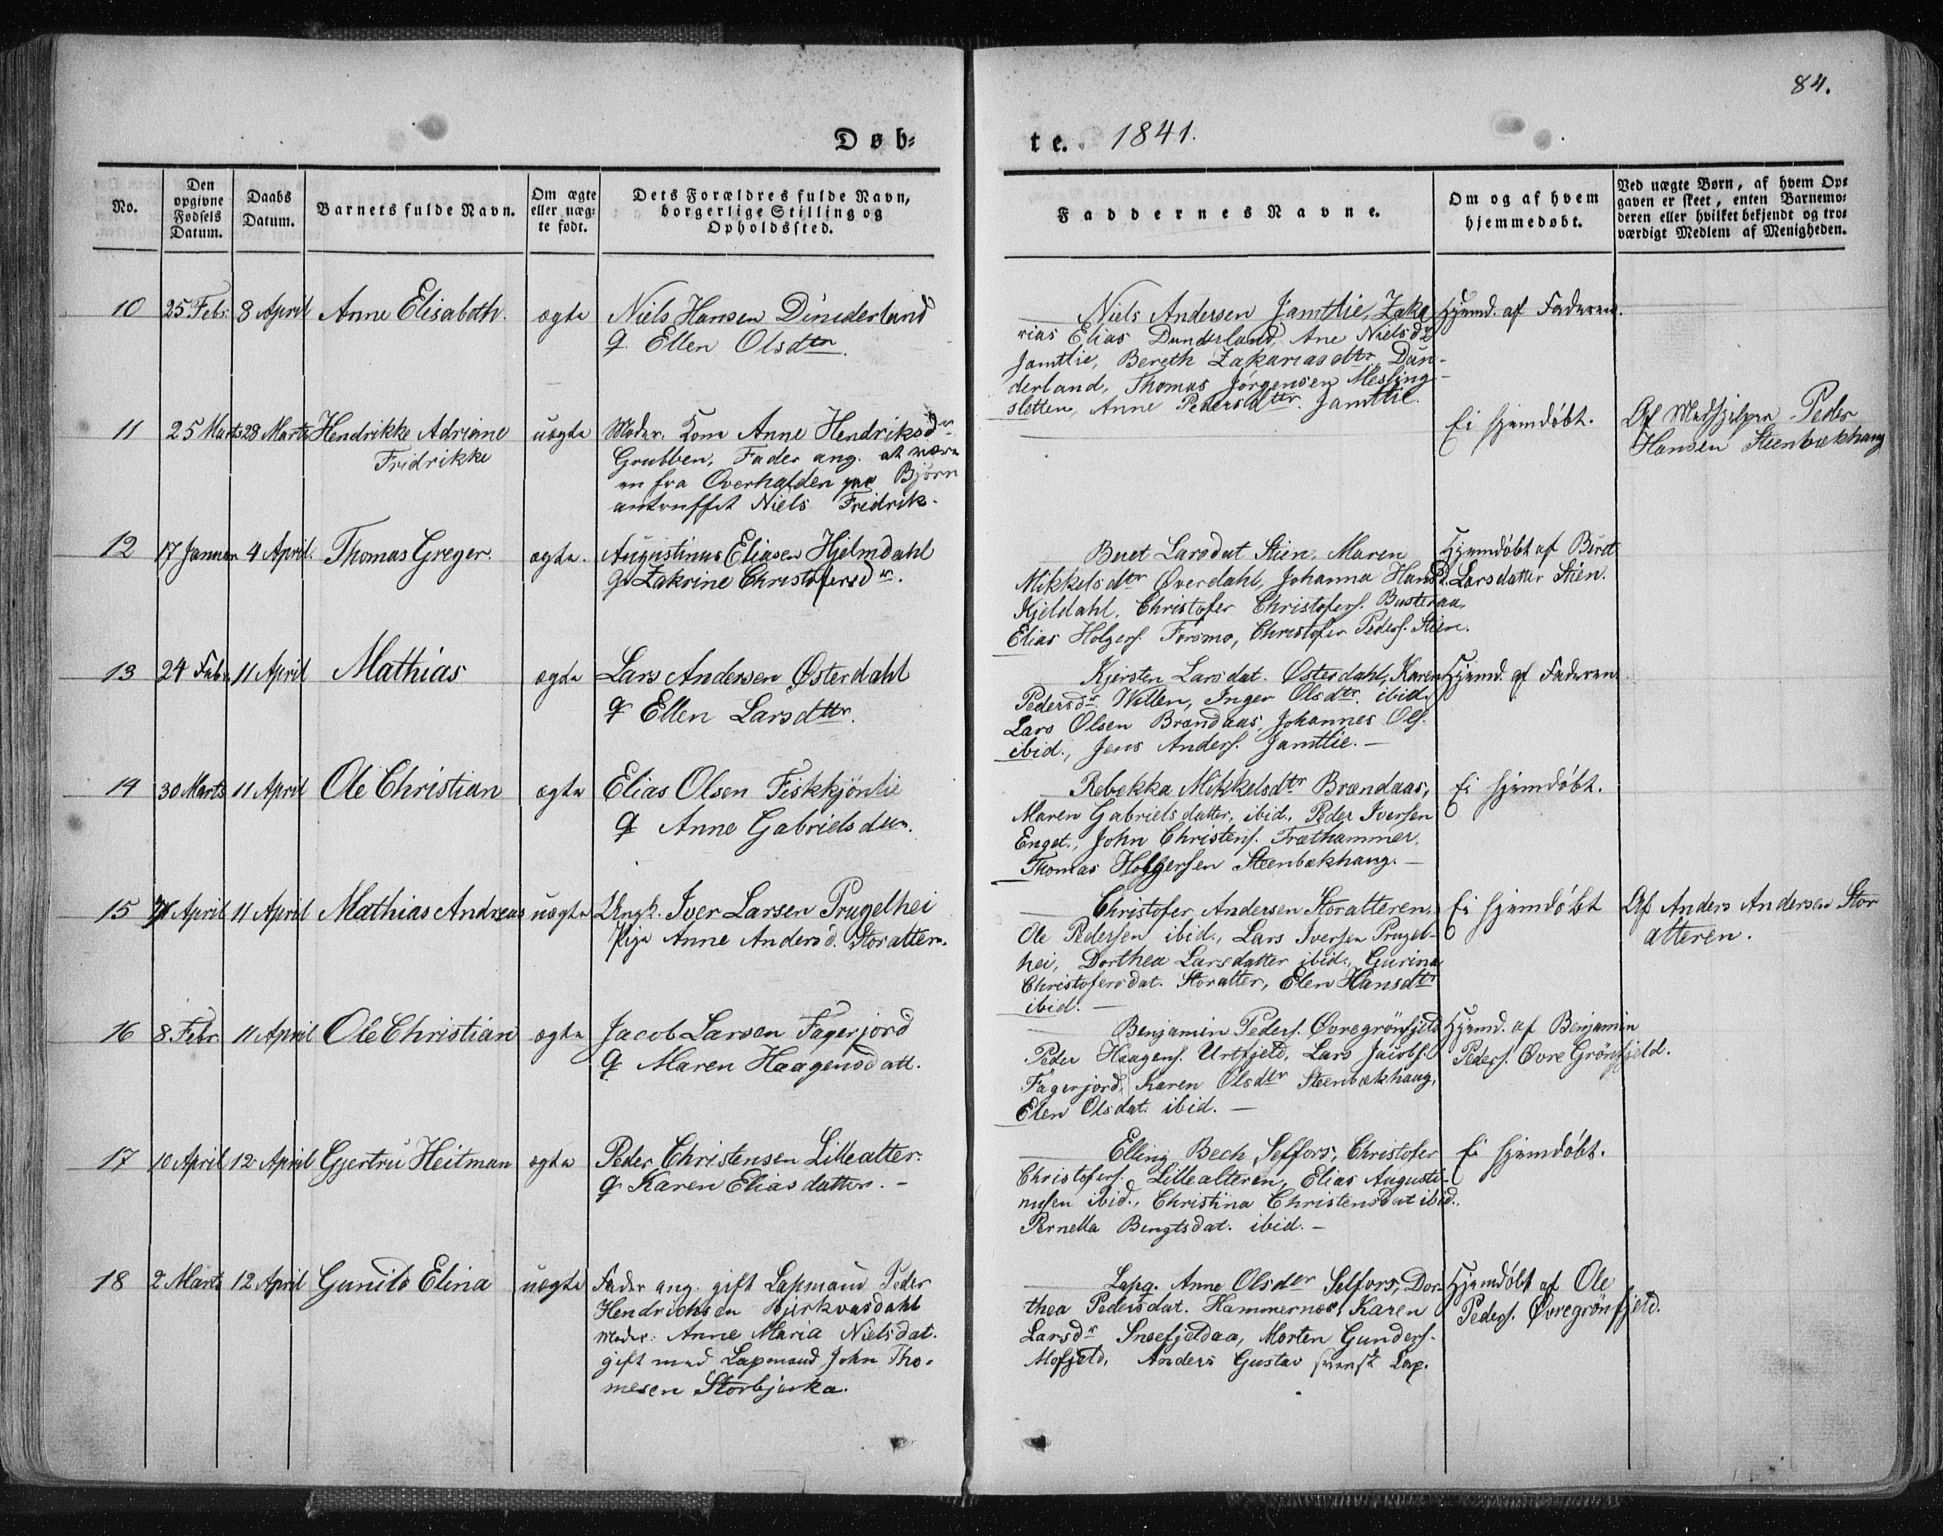 84.
Døb-
te. 1841.
No.
Den opgivne Fødsels Datum.
Daabs Datum.
Barnets fulde Navn.
Om ægte eller uæg- te født.
Dets Forældres fulde Navn, borgerlige Stilling og Opholdssted.
Faddernes Navne.
Om og af hvem hjemmedøbt.
Ved uægte Børn, af hvem Op- gaven er skeet, enten Barnemo- deren eller hvilket bekjendt og tro- værdigt Medlem af Menigheden.
10 25 Febr. 8 April Anne Elisabeth. ægte
Niels Hansen Dunderland
q Ellen Olsdtr.
Niels Andersen Jamtlie, Zaka
rias Elias Dunderland, Ane Nielsdr
Jamtlie, Bereth Zakariasdtr Dun-
derland, Thomas Jørgensen Messing-
sletten, Anne Pedersdtr. Jamtlie.
Hjemd. af Faderen.
11 25 Marts 28 Marts Hendrikke Adriane
Fridrikke
uægte
Moder: Kone Anne Hendriksdr
Grubben, Fader ang. at være
en fra Overhalden paa Björn
antruffet Niels Fridrik.
Ei hjemdøbt.
Af Medhjelper Peder
Hansen Steenbækhaug
12 17 Januar 4 April. Thomas Greger. ægte.
Augustinus Eliasen Hjelmdahl
q Zakrine Christofersdr.
Beret Larsdat Stien, Maren
Mikkelsdtr Øverdahl, Johanna Hansd.
Kjeldahl, Christofer Christofers. Busteraa,
Elias Holgers. Forsmo, Christofer Peders. Stien.
Hjemdøbt af Beret
Larsdatter Stien.
13 24 Febr 11 April Mathias ægte
Lars Andersen Østerdahl
q Ellen Larsdttr.
Kjersten Larsdat. Østerdahl, Karen
Pedersdr Villen, Inger Olsdtr. ibid
Lars Olsen Brændaas, Johannes Ols.
ibid., Jens Anders. Jamtlie. —
Hjemd. af Faderen
14 30 Marts 11 April Ole Christian ægte
Elias Olsen Fiskkjönlie
q Anne Gabrielsdtr.
Rebekka Mikkelsdtr Brændaas,
Maren Gabrielsdatter, ibid. Peder Iversen
Enget., John Christens. Træthammer.
Thomas Holgersen Steenbækhaug. —
Ei hjemdøbt.
15 7 April 11 April Mathias Andreas uægte
Ungk. Iver Larsen Prugelhei
Pige Anne Andersd. Storalteren.
Christofer Andersen Storalteren,
Ole Pedersen ibid., Lars Iversen Prugel-
hei, Dorthea Larsdatter ibid., Gurina
Christofersdat. Storalter, Elen Hansdtr
ibid. —
Ei hjemdøbt
Af Anders Andersen Stor
alteren.
16 8 Febr. 11 April Ole Christian ægte
Jacob Larsen Fagerjord
q Maren Haagensdatt.
Benjamin Peders. Øvregrönfjeld
Peder Haagens. Urtfjeld, Lars Jacobs.
Fagerjord, Karen Olsdtr Steenbækhaug,
Elen Olsdat. ibid. —
Hjemd. af Benjamin
Peders. Øvre Grönfjeld.
17 10 April 12 April Gjertru Heitman ægte
Peder Christensen Lillealter.
q Karen Eliasdatter. —
Elling Bech, Selfors, Christofer
Christofers. Lillealteren, Elias Augusti-
nusen ibid., Christina Christensdat ibid.
Pernella Bengtsdat. ibid. —
Ei hjemdøbt.
18 2 Marts 12 April Gunild Elina uægte
Fader ang. gift Lapmand Peder
Hendrichsen Bjerkvasdahl
Moder: Anne Maria Nielsdat.
gift med Lapmand John Tho-
mesen Storbjerka.
Lapq. Anne Olsdr Selfors, Dor
thea Pedersdat. Hammernes, Karen
Larsdr Sneefjeldaa, Morten Gunders.
Mofjeld, Anders Gustav svensk Lap.
Hjemdøbt af Ole
Peders. Øvregrönfjeld.